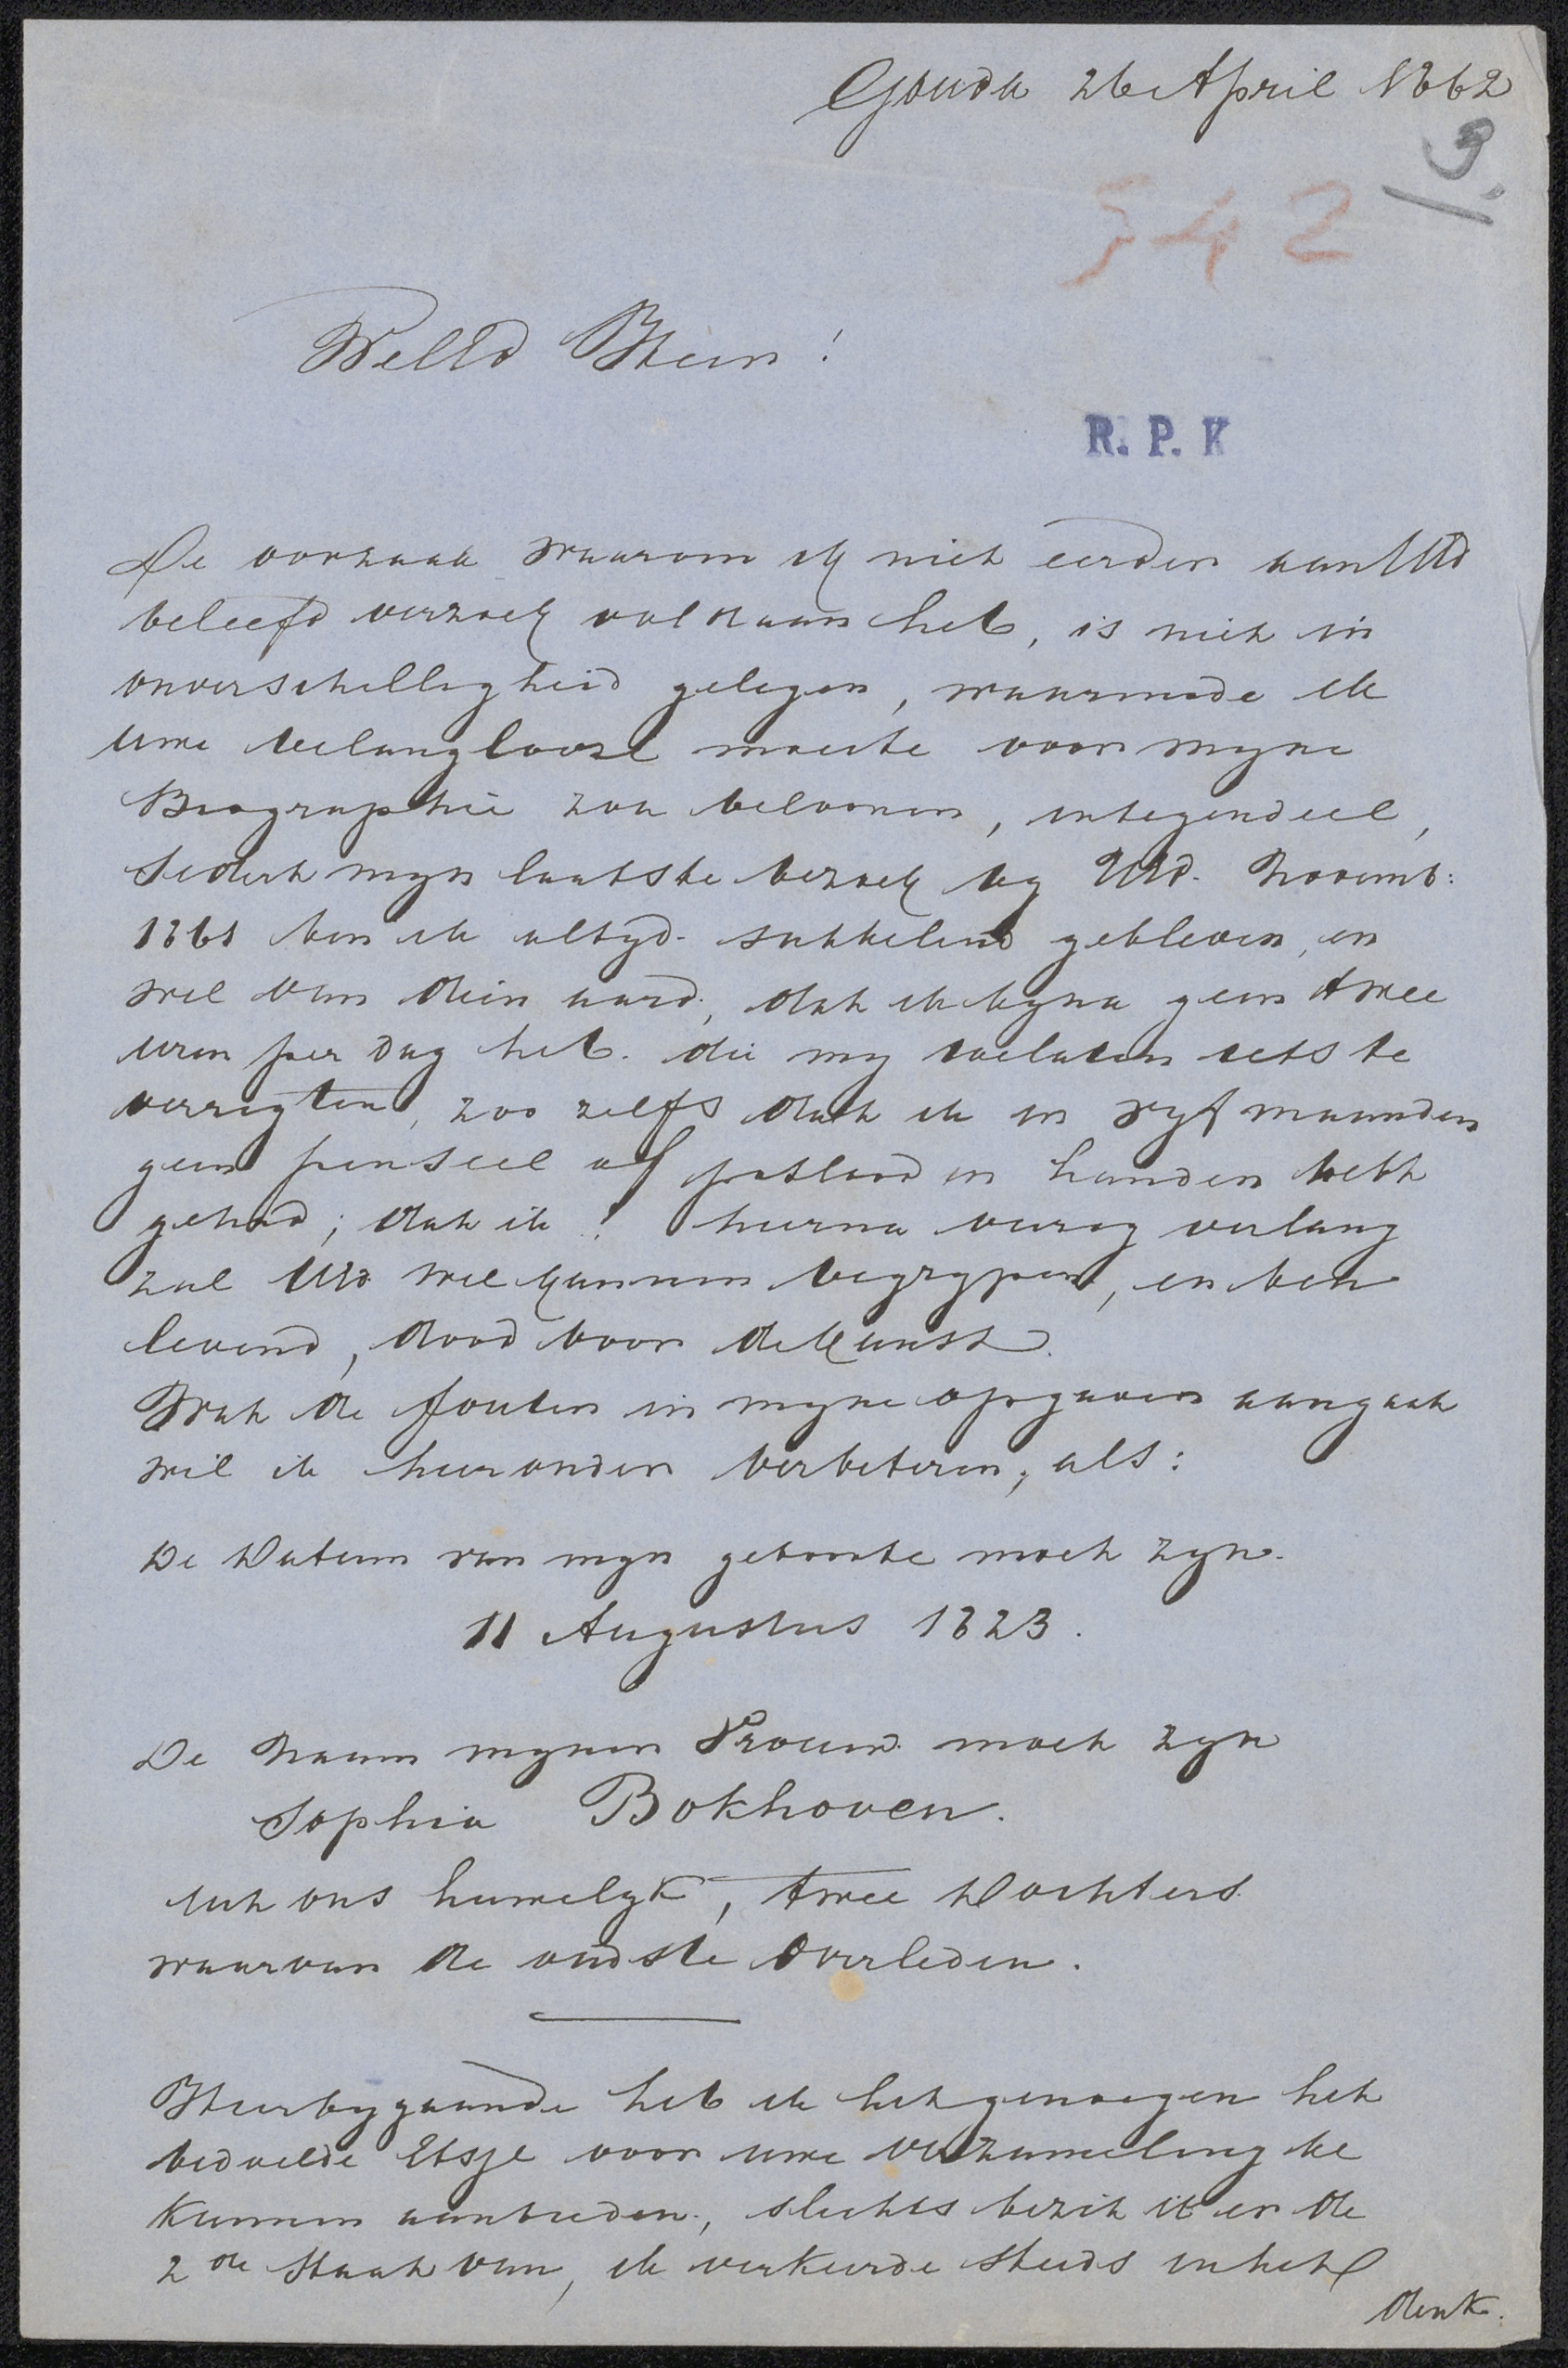 Gouda 26 April 1862
3.
542
WelEd Heer!
R. P. K
De oorzaak waarom ik niet eerder aan UEd
beleefd verzoek voldaan heb, is niet in
onverschilligheid gelegen, waarmede ik
uwe belanglooze moeite voor myne
Biographie zou beloonen, integendeel,
Sedert myn laatste bezoek by UEd. Novemb:
1861 ben ik altyd sukkelend gebleven, en
wel van dien aard, dat ik byna geen twee
uren per dag heb die my toelaten iets te
verrigten, zoo zelfs dat ik in vyf maanden
geen penseel of potlood in handen hebt
gehad; dat ik ! hierna vurig verlang
zal UEd wel kunnen begrypen, en ben
levend, dood voor de kunst.
Wat de fouten in myne opgaven aangaat
wil ik hieronder verbeteren, als:
De Datum van myn geboorte moet zyn
11 Augustus 1823.
De Naam myner Vrouw moet zyn
Sophia Bokhoven.
Uit ons huwelyk, twee Dochters
waarvan de oudste overleden.
Hierbygaande heb ik het genoegen het
bedoelde Etsje voor uwe verzameling te
kunnen aanbieden, slechts bezit ik er de
2de Staat van, ik verkeerde steeds in het
denk.